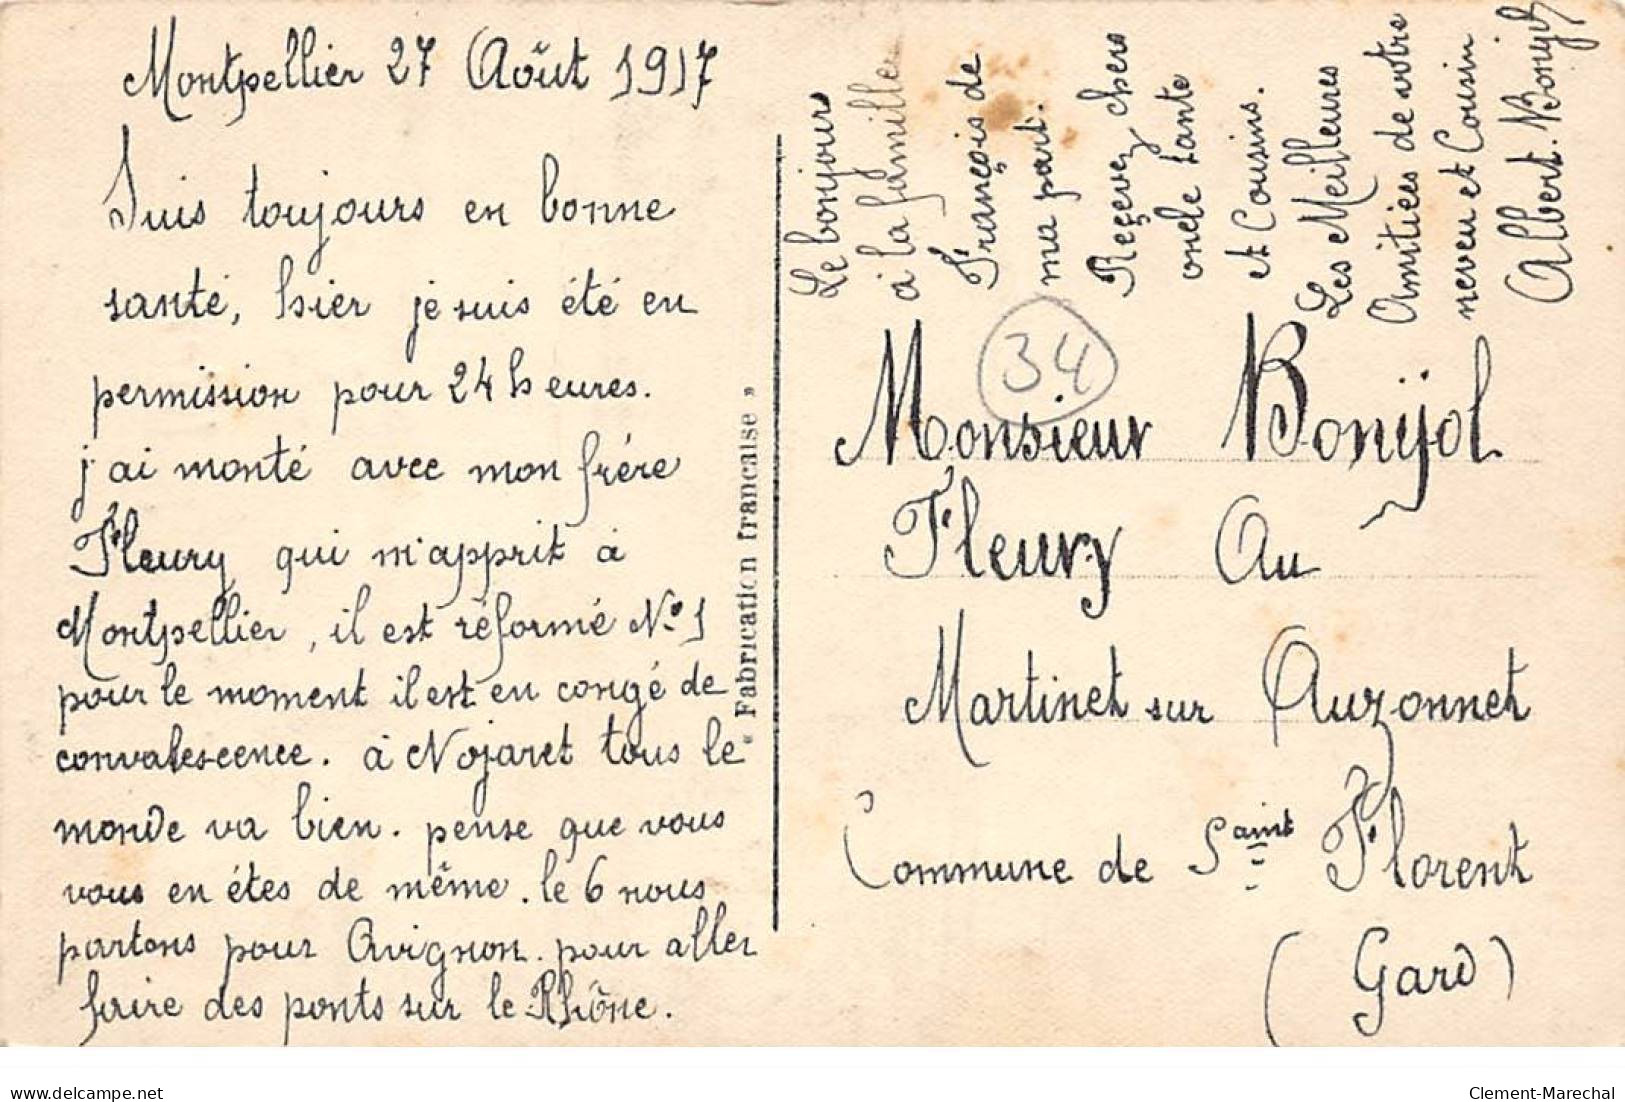 Montpellier 27 Août 1917
Suis toujours en bonne
santé, hier je suis été en
permission pour 24 heures.
j'ai monté avec mon frére
Fleury qui m'apprit à
Montpellier, il est réformé N° 1
pour le moment il est en congé de
convalescence. à Nojaret tous le
monde va bien. pense que vous
vous en étes de même. le 6 nous
partons pour Avignon. pour aller
faire des ponts sur le Rhône.
« Fabrication francaise »
Le bonjour
à la famille
François de
ma part.
Reçevez chers
oncle tante
et Cousins.
Les Meilleures
Amitiées de votre
neveu et Cousin
Albert. Bonijol
34
Monsieur Bonijol
Fleury Au
Martinet sur Auzonnet
Commune de Saint Florent
(Gard)
www.delcampe.net
Clement-Marechal